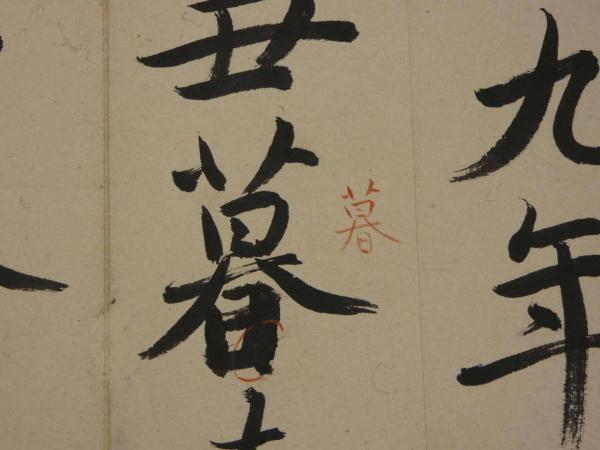 九年
丑暮
暮